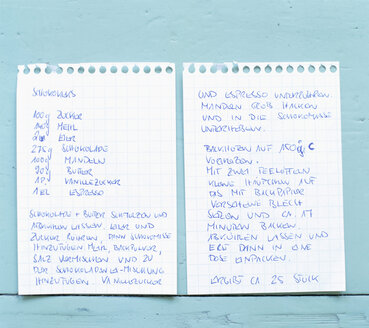 SCHOKOKEKS
100g ZUCKER
140g MEHL
2 EIER
275g SCHOKOLADE
100g MANDELN
90g BUTTER
1 P. VANILLEZUCKER
1 EL ESPRESSO
SCHOKOLADE + BUTTER SCHMELZEN UND
ABKÜHLEN LASSEN. EIER UND
ZUCKER RÜHREN, DANN SCHOKOMASSE
HINZUFÜGEN. MEHL, BACKPULVER,
SALZ VERMISCHEN UND ZU
DER SCHOKOLADEN-EI-MISCHUNG
HINZUFÜGEN. VANILLEZUCKER
UND ESPRESSO UNTERRÜHREN.
MANDELN GROB HACKEN
UND IN DIE SCHOKOMASSE
UNTERHEBEN.
BACKOFEN AUF 180°C
VORHEIZEN.
MIT ZWEI TEELÖFFELN
KLEINE HÄUFCHEN AUF
DAS MIT BACKPAPIER
VERSEHENE BLECH
SETZEN UND CA. 11
MINUTEN BACKEN.
ABKÜHLEN LASSEN UND
ERST DANN IN EINE
DOSE EINPACKEN.
ERGIBT CA 25 STÜCK